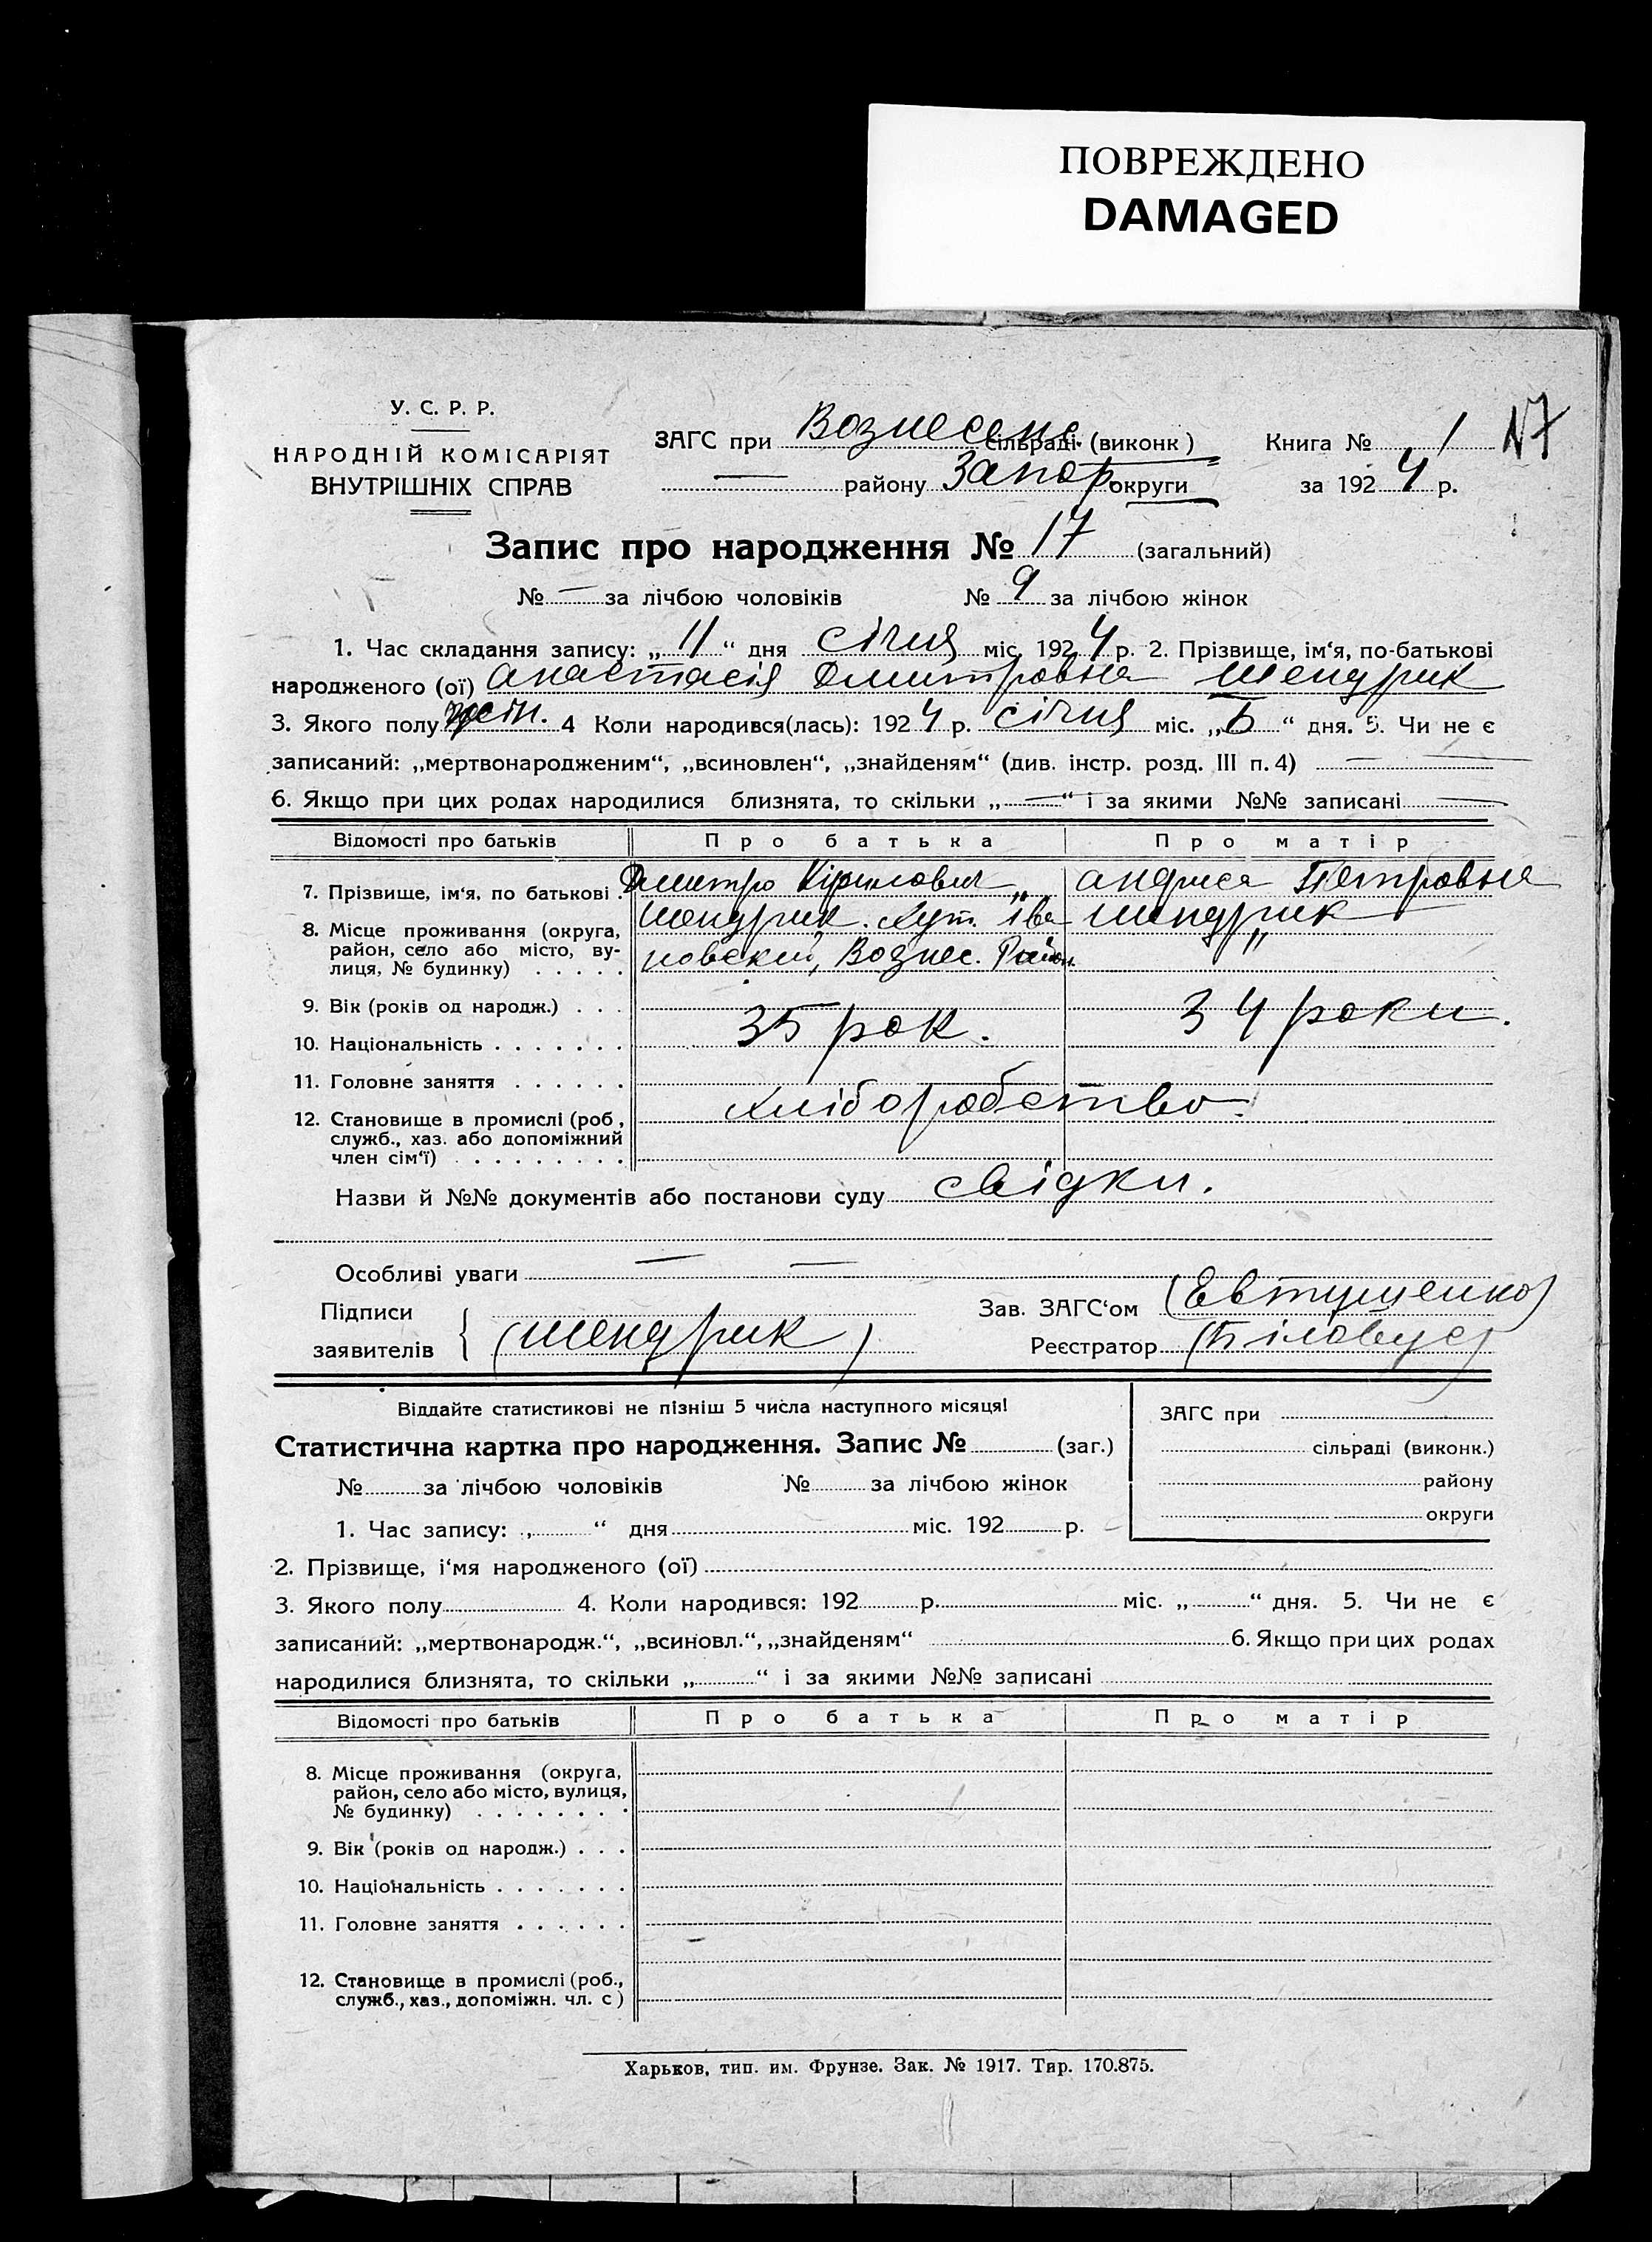 ПОВРЕЖДЕНО
DAMAGED
У. С. Р. Р.
НАРОДНІЙ КОМІСАРІЯТ
ВНУТРІШНІХ СПРАВ
ЗАГС при Вознесенс. сільраді (виконк)
— району Запор. округи
Книга № 1
№7
за 1924 р.
Запис про народження № 17 (загальний)
№ — за лічбою чоловіків № 9 за лічбою жінок
1. Час складання запису: „11“ дня січня міс. 1924 р. 2. Прізвище, ім‘я, по-батькові
народженого (ої) Анастасія Дмитровна Шендрик
3. Якого полу жін. 4 Коли народився(лась): 1924 р. січня міс. „5“ дня. 5. Чи не є
записаний: „мертвонародженим“, „всиновлен“, „знайденям“ (див. інстр. розд. III п. 4) —
6. Якщо при цих родах народилися близнята, то скільки „—“ і за якими №№ записані —
Відомості про батьків Про батька Про матір
7. Прізвище, ім‘я, по батькові . Дмитро Кірилович Петровна
8. Місце проживання (округа, Шендрик. Хут. Іва Шендрик
район, село або місто, ву- новский, Вознес. Район. "
лиця, № будинку) . . . . .
9. Вік (років од народж.) . . . 35 рок. 34 роки.
10. Національність . . . . . . .
11. Головне заняття . . . . . .
хліборобство.
12. Становище в промислі (роб.,
служб., хаз. або допоміжний
член сім‘ї) . . . . . . . . .
Назви й №№ документів або постанови суду свідки.
Особливі уваги — —
Підписи
заявителів (Шендрик)
Зав. ЗАГС‘ом (Евтушенко)
Реєстратор (Біловус)
Віддайте статистикові не пізніш 5 числа наступного місяця!
Статистична картка про народження. Запис № (заг.)
№ за лічбою чоловіків № за лічбою жінок
1. Час запису: „ “ дня міс. 192 р.
ЗАГС при
сільраді (виконк.)
району
округи
2. Прізвище, і‘мя народженого (ої)
3. Якого полу 4. Коли народився: 192 р. міс. „ “ дня. 5. Чи не є
записаний: „мертвонародж.“, „всиновл.“, „знайденям“ 6. Якщо при цих родах
народилися близнята, то скільки „ “ і за якими №№ записані
Відомості про батьків Про батька Про матір
8. Місце проживання (округа,
район, село або місто, вулиця,
№ будинку) . . . . . . .
9. Вік (років од народж.) . . .
10. Національність . . . . . . .
11. Головне заняття . . . . . .
12. Становище в промислі (роб.,
служб., хаз., допоміжн. чл. с)
Харьков, тип. им. Фрунзе. Зак. № 1917. Тир. 170.875.